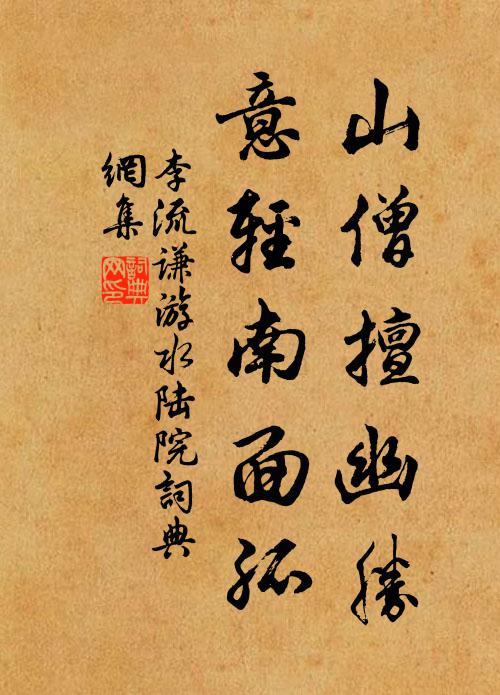 山僧擅幽勝
意輕南面孤
李流謙游水陆院詞典
網集
詞典网印